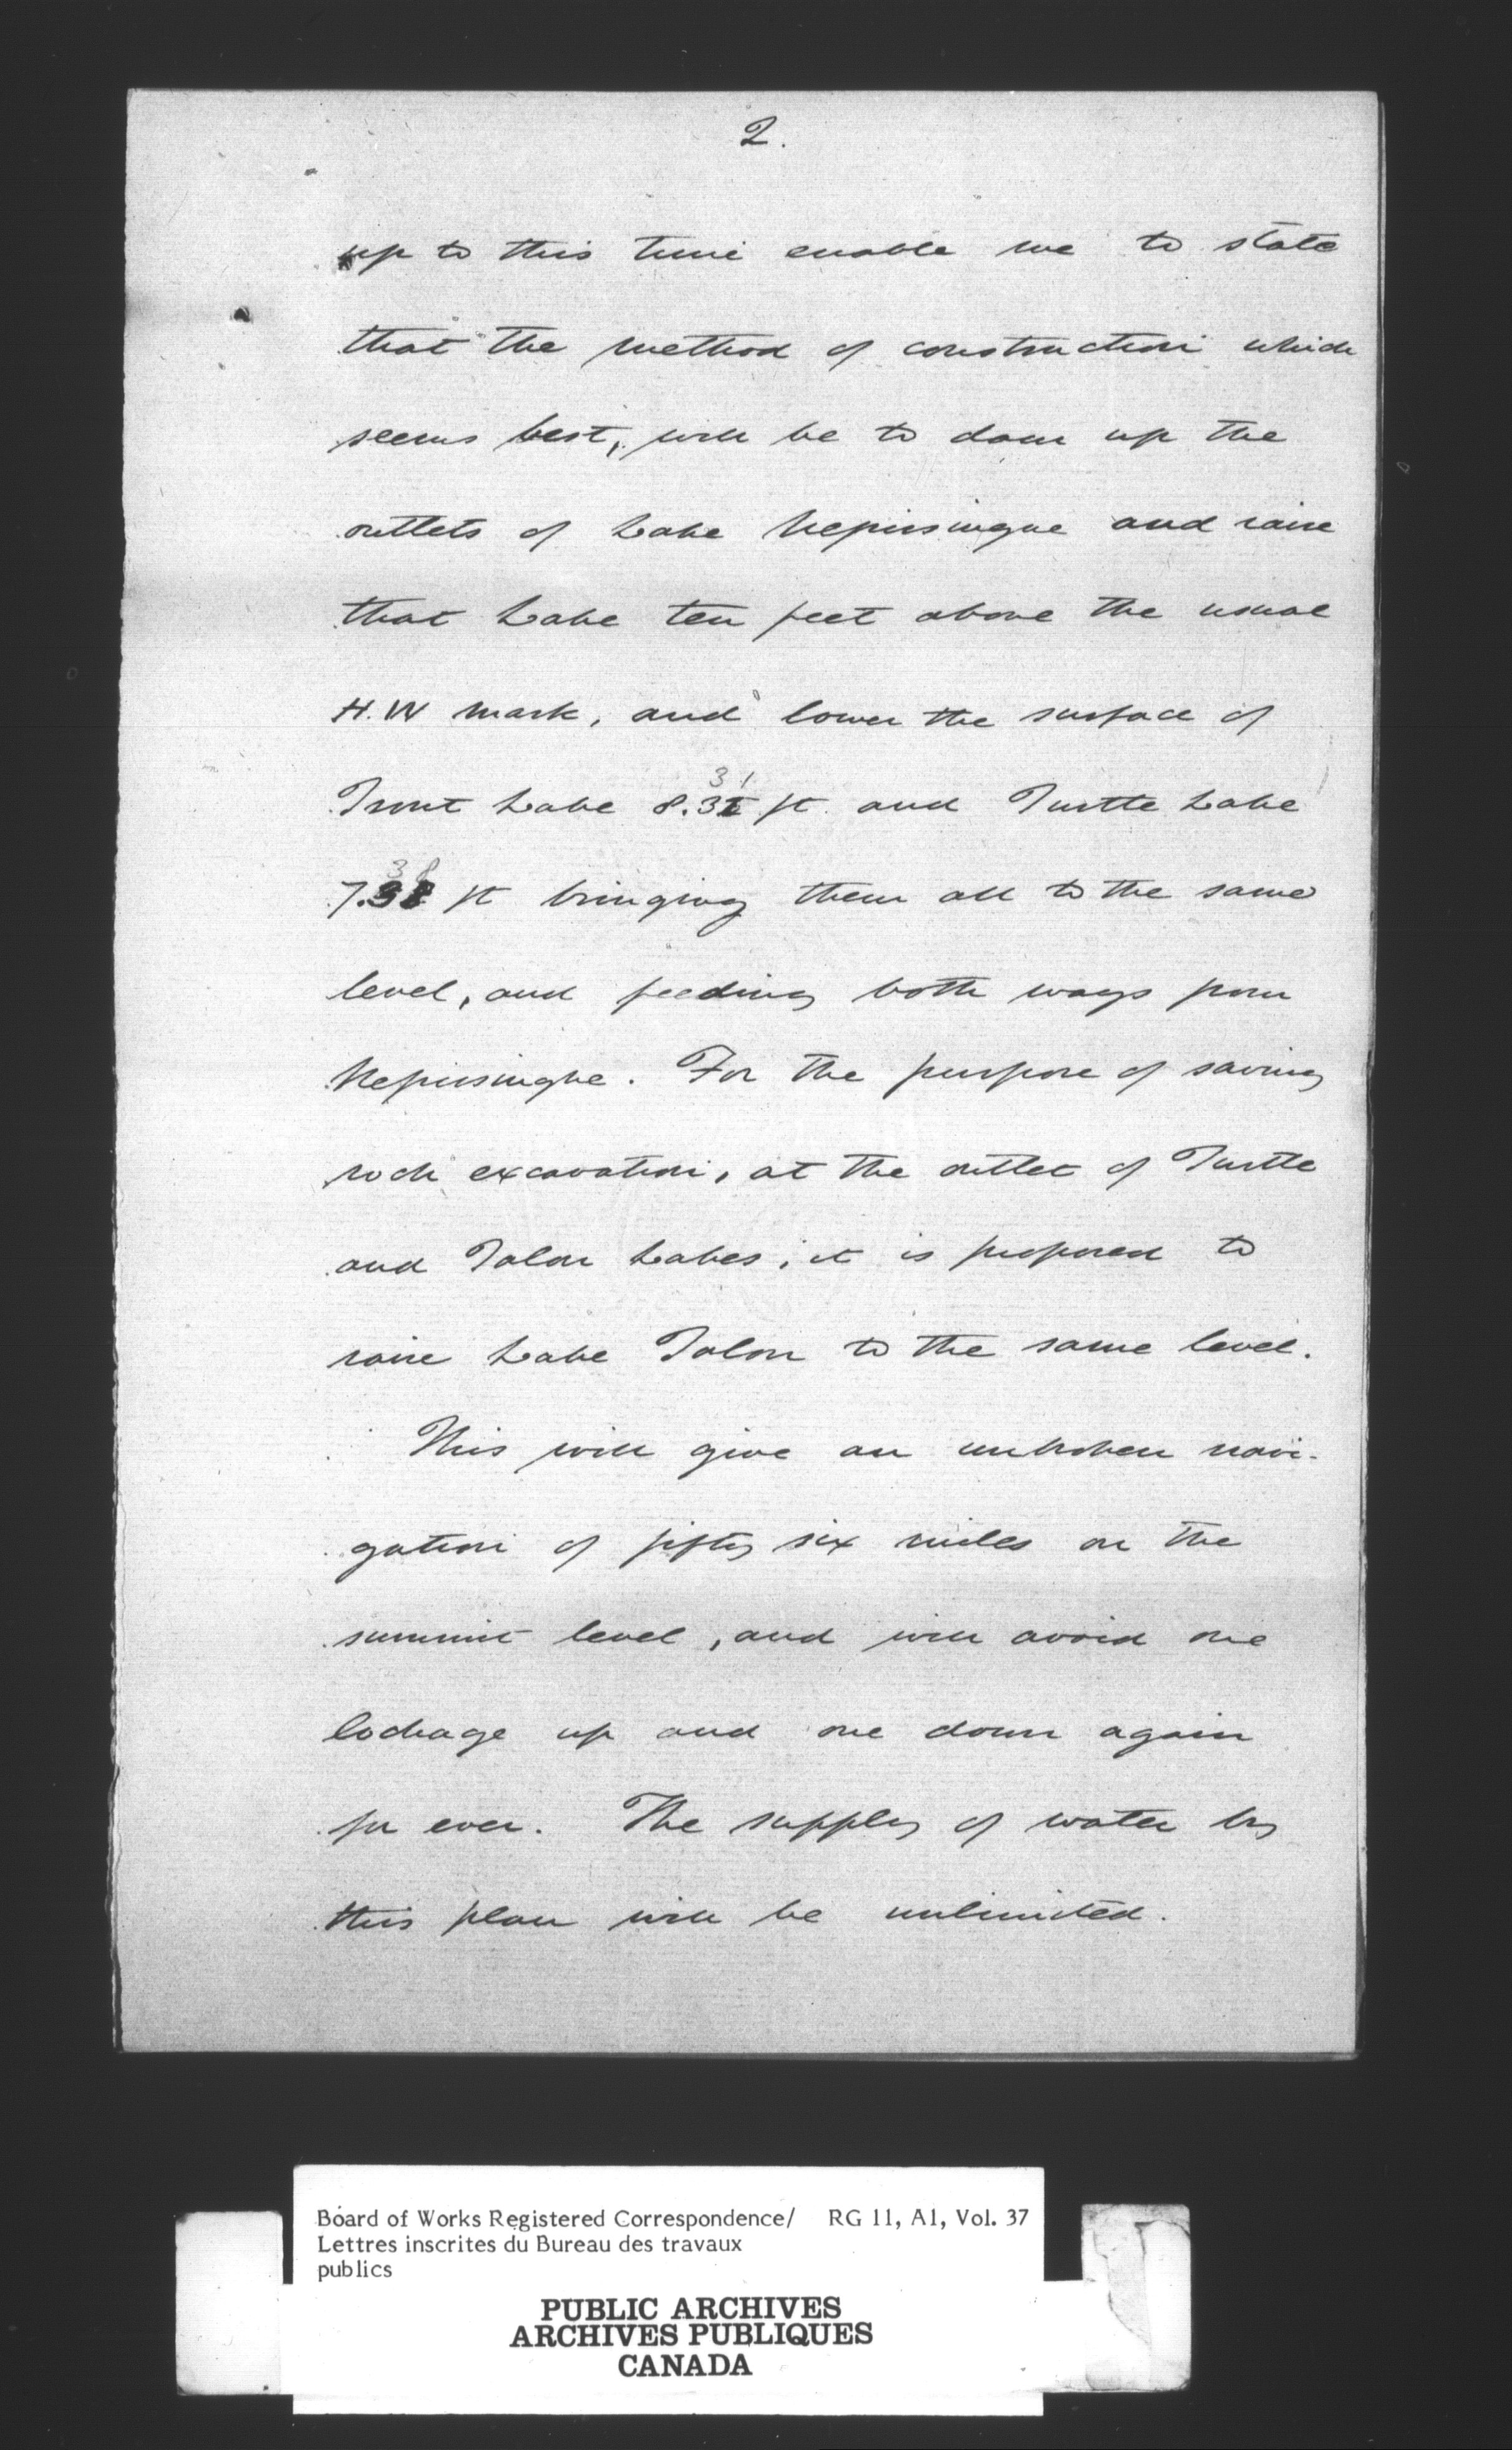 2.
up to this time enable me to state
that the method of construction which
seems best, will be to dam up the
outlets of Lake Nepissingue and raise
that Lake ten feet above the usual
H.W mark, and lower the surface of
31
Trout Lake 8.31 ft. and Turtle Lake
38
7.38 ft bringing them all to the same
level, and feeding both ways from
Nepissingue. For the purpose of saving
rock excavation, at the outlet of Turtle
and Talon Lakes, it is proposed to
raise Lake Talon to the same level.
This will give an unbroken navi-
gation of fifty six miles on the
summit level, and will avoid one
lockage up and one down again
for ever. The supply of water by
this plan will be unlimited.
Board of Works Registered Correspondence/ RG 11, A1, Vol. 37
Lettres inscrites du Bureau des travaux
publics
PUBLIC ARCHIVES
ARCHIVES PUBLIQUES
CANADA